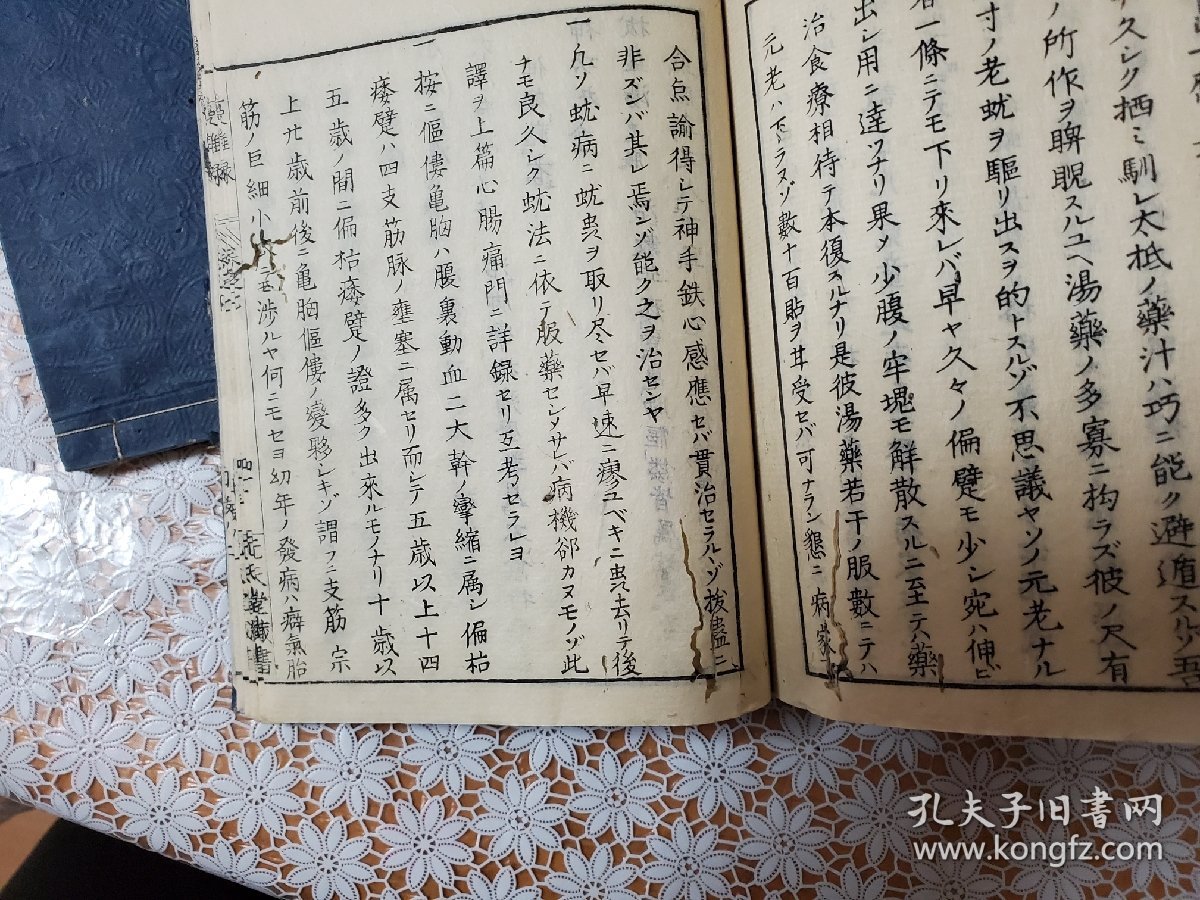 久シク栖ミ馴レ太抵ノ藥汁ハ巧ニ能ク避遁スルゾ吾
ノ所作ヲ睥睨スルユヘ湯藥ノ多寡ニ拘ラズ彼ノ尺有
寸ノ老蚘ヲ驅リ出スヲ的トスルゾ不思議ヤソノ元老ナル
者一條ニテモ下リ來レバ早ヤ久々ノ偏躄モ少シ宛ハ伸ビ
出シ用ニ達ツナリ果メ少腹ノ牢塊モ解散スルニ至テハ藥
治食療相待テ本復スルナリ是彼湯藥若干ノ服數ニテハ
元老ハ下ラスゾ數十百貼ヲ甘受セバ可ナラン懇ニ病家
合点諭得レテ神手鉄心感應セバ貫治セラルヽゾ拔蠱ニ
非ズンバ其レ焉ンゾ能ク之ヲ治センヤ
一凡ソ蚘病ニ蚘虫ヲ取リ尽セバ早速ニ瘳ユベキニ虫去リテ後
ナモ良久シク蚘法ニ依テ服藥セシメサレバ病機郤カヌモノゾ此
譯ヲ上篇心腸痛門ニ詳録セリ互考セラレヨ
一按ニ傴僂亀胸ハ腹裏動血二大幹ノ攣縮ニ属シ偏枯
痿躄ハ四支筋脉ノ壅塞ニ属セリ而レテ五歳以上十四
五歳ノ間ニ偏枯痿躄ノ證多ク出來ルモノナリ十歳以
上廿歳前後ニ亀胸傴僂ノ變夥レキゾ謂フニ支筋宗
筋ノ巨細小大ニモ渉ルヤ何ニモセヨ幼年ノ發病ハ癖氣胎
孔夫子旧书网
www.kongfz.com